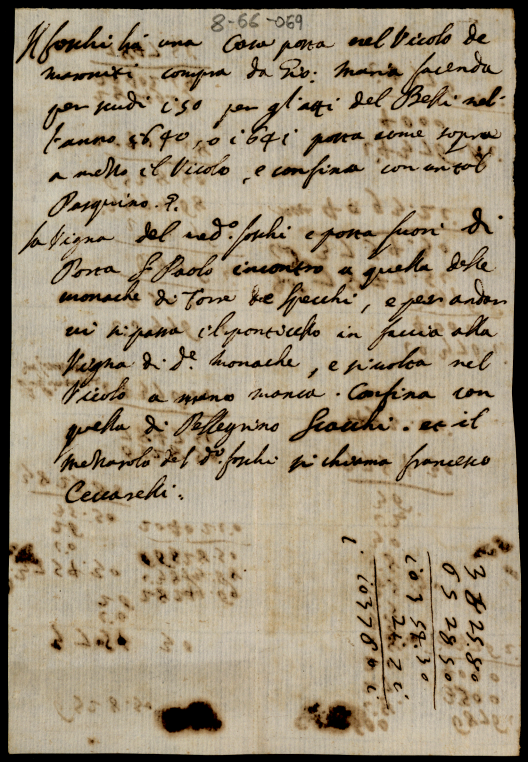 8-66-069
Il foschi hà una Casa posta nel Vicolo de
maroniti compra da Gio: Maria facenda
per scudi 150 per gl'atti del Belli nel-
l'anno 1640, o 1641 posta come sopra
a mezzo il Vicolo, e confina con un tal
Pasquino.
la Vigna del med.o foschi e posta fuori di
Porta S. Paolo incontro a quella delle
monache di Torre de Specchi, e per andar
vi si passa il ponticello in faccia alla
Vigna di d.e monache, e si volta nel
Vicolo a mano manca. Confina con
quella di Pellegrino et il
mezzarolo del d.o foschi si chiama francesco
Ceccarelli.
3 8 25.80
65 28 50
103 54.30